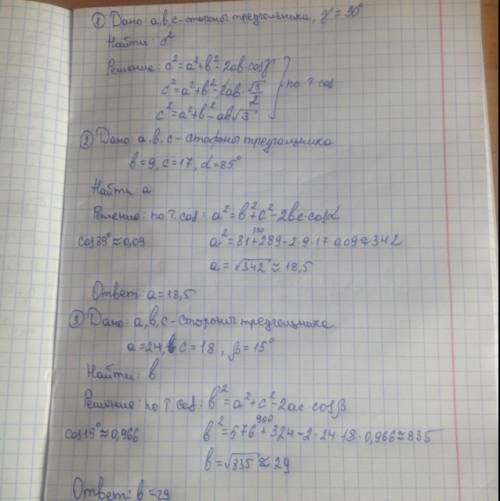 ① Дано: a,b,c-стороны треугольника, γ = 30°
Найти: c²
Решение: c² = a²+b²-2ab·cosγ
c² = a²+b²-2ab·√3/2
c² = a²+b²-ab√3
} по т. cos
② Дано: a,b,c-стороны треугольника
b=9, c=17, α=85°
Найти: a
Решение: по т. cos: a²=b²+c²-2bc·cosα
a²=81+289-2·9·17·0,09≈342
a=√342≈18,5
Ответ: a=18,5
③ Дано: a,b,c-стороны треугольника
a=24, c=18, β=15°
Найти: b
Решение: по т. cos: b²=a²+c²-2ac·cosβ
cos15°≈0,966
900
b²=576+324-2·24·18·0,966≈835
b=√835≈29
Ответ: b=29